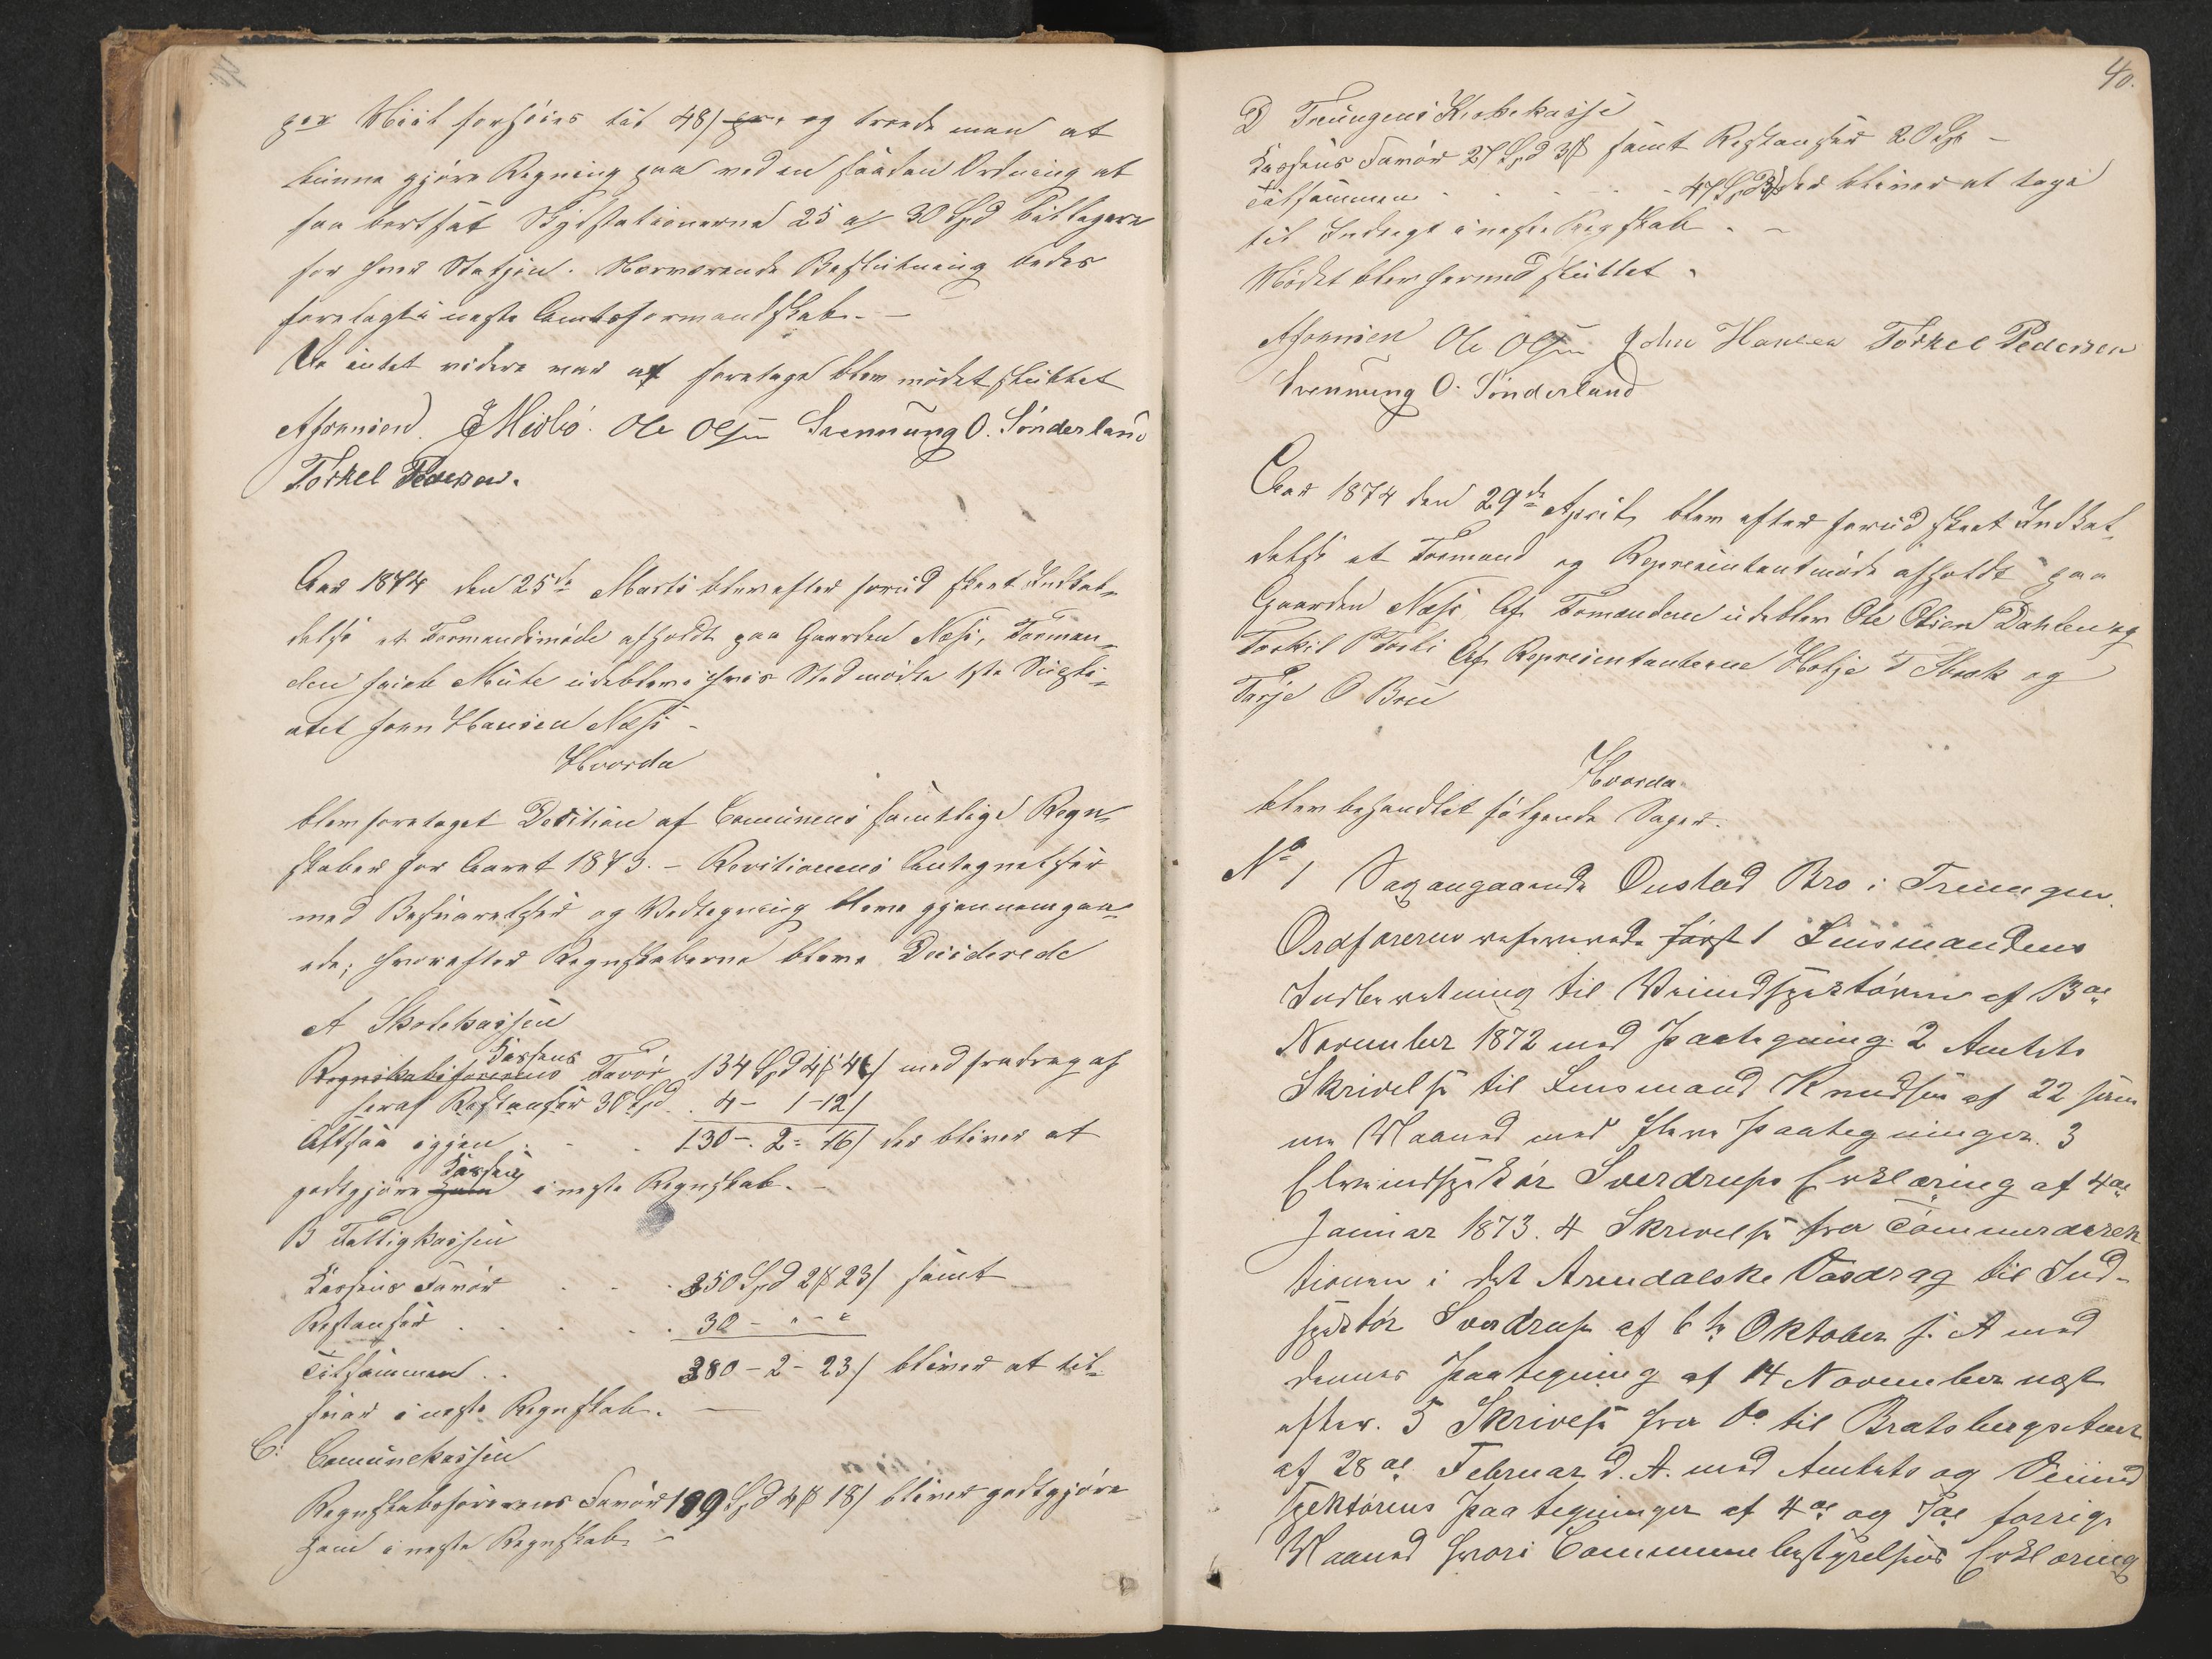 per Miil forhöies til 48/ og troede man at
kunne gjöre Regning paa ved en saadan Ordning at
faa bortsat Skydsstationerne 25 a/ 30 Spd billigere
for hver Station. Nærværende Beslutning bedes
forelagt i neste Amtsformandskab. —
Da intet videre var at foretage blev mödet sluttet
Ole Olsen Svennung O. Sönderland
Torkel Pedersen.
Aar 1874 den 25de Marts blev efter forud skeet Indkal-
delse et Formandsmöde afholdt paa Gaarden Næss, Forman-
den udebleve hvis Sted mödte 1ste Supli-
ant John Hansen Næss –
Hvorda
blev foretaget Desition af Comunens samtlige Regn-
skaber for Aaret 1873. – Revitionens Antegnelser
med Besvarelser og Vedtegning bleve gjennemgaa-
ede; hvorefter Regnskaberne bleve Desiderede
A Skolekassen
Kassens
Regnskabsförerens Favör 134 Spd 4 ß 4/ med fradrag af
heraf Restanser 30 Spd . . 4 – 1 – 12/
Altsaa igjen . . . 130 – 2 – 16/ der bliver at
Kassen
godtgjöre ham i neste Regnskab. –
B Fattigkassen
Kassens Favör . . . 250 Spd 2 ß 23/ samt
Restanser . . . . . 30 – " – "
Tilsammen . . 280 – 2 – 23/ bliver at til-
före i neste Regnskab. —
C: Comunekassen
Regnskabsförerens Favör 189 Spd 4 ß 18/ bliver godtgjöre
ham i neste Regnskab –
40.
D Treungens Kirkekasse
Kassens Favör 27 Spd 3 ß samt Restanser 20 Sp –
Tilsammen . . . . . 47 Spd 3 ß der bliver at tage
til Indtegt i neste Regnskab . –
Mödet blev hermed sluttet .
Ole Olsen John Hansen Torkel Pedersen
Svennung O. Sönderland
Aar 1874 den 29de April blev efter forud skeet Indkal-
delse et Formand og Represintantmöde afholdt paa
Gaarden Næss. Af Formandene udeblev Ole Olsen Dahlen og
Torkil P Af Represintanterne T og
Tarje O
Hvorda
blev behandlet fölgende Sager.
No 1 Sag angaaende Onstad Bro i Treungen.
Ordföreren refererede först 1 Lensmandens
Indberetning til Veiindspektören af 13de
November 1872 med Paategning. 2 Amtets
Skrivelse til Lensmand Knudsen af 22 sam-
me Maaned med flere Paategninger. 3
Elveindspektör Sverdrups Erklæring af 4de
Januar 1873. 4 Skrivelse fra Tömmerdirek
tionen i det Arendalske Vasdrag til Ind-
spektör Sverdrup af 6te Oktober f. A med
dennes Paategning af 14 November næst
efter. 5 Skrivelse fra Do til Bratsbergs Amt
af 28de Februar d. A. med Amtets og Veiind
spektörens Paategninger af 4de og 7de forrige
Maaned hvori Communebestyrelsens Erklæring